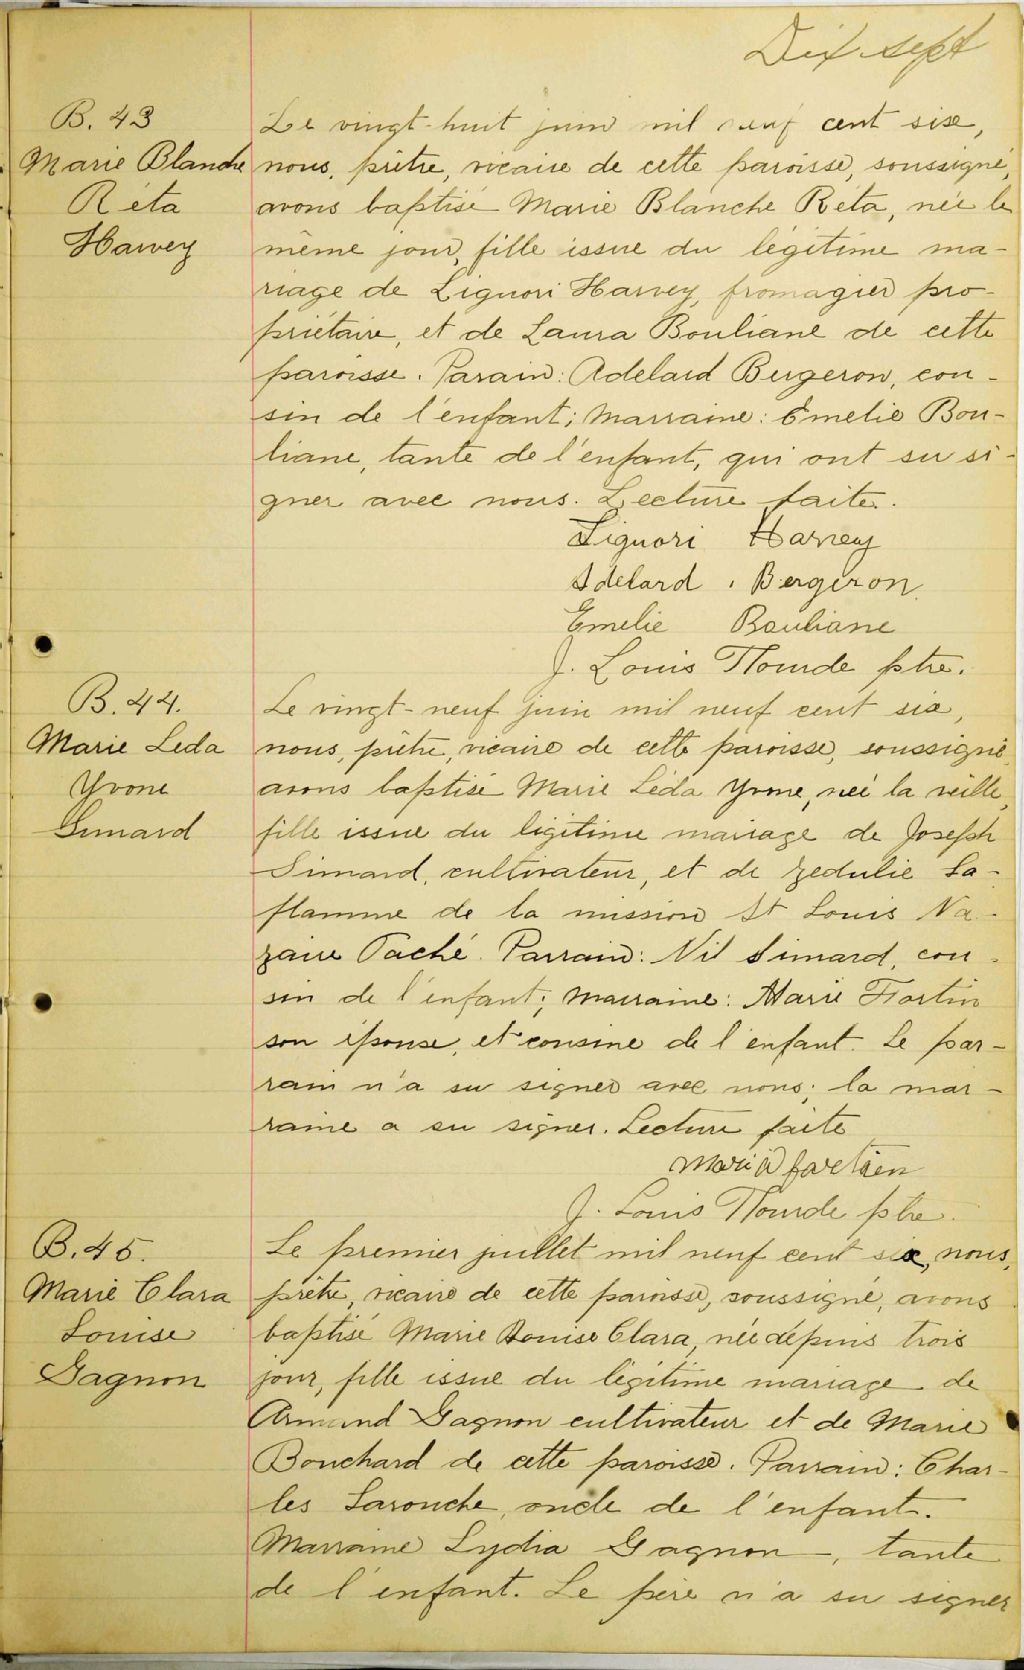 Dix sept
B. 43
Marie Blanche
Réta
Harvey
Le vingt-huit juin mil neuf cent six,
nous, prêtre, vicaire de cette paroisse, soussigné,
avons baptisé Marie Blanche Réta, née le
même jour, fille issue du légitime ma-
riage de Liguori Harvey, fromagier pro-
priétaire, et de Laura Bouliane de cette
paroisse. Parain: Adelard Bergeron, cou-
sin de l'enfant; Marraine: Emelie Bou-
liane, tante de l'enfant, qui ont su si-
gner avec nous. Lecture faite.
Liguori Harvey
Adelard Bergeron
Emelie Bouliane
J. Louis Tlourde ptre.
B. 44.
Marie Leda
Yvone
Simard
Le vingt-neuf juin mil neuf cent six,
nous, prêtre, vicaire de cette paroisse, soussigné,
avons baptisé Marie Léda Yvone, née la veille,
fille issue du légitime mariage de Joseph
Simard, cultivateur, et de Zedulie La-
flamme de la mission St Louis Na-
zaire Taché. Parrain: Nil Simard, cou-
sin de l'enfant; marraine: Marie Fortin
son épouse, et cousine de l'enfant. Le par-
rain n'a su signer avec nous; la mar-
raine a su signer. Lecture faite
Maria fortien
J. Louis Tlourde ptre.
B. 45.
Marie Clara
Louise
Gagnon
Le premier juillet mil neuf cent six, nous,
prêtre, vicaire de cette paroisse, soussigné, avons
baptisé Marie Louise Clara, née depuis trois
jour, fille issue du légitime mariage de
Armand Gagnon cultivateur et de Marie
Bouchard de cette paroisse. Parrain: Char-
les Larouche, oncle de l'enfant.
Marraine Lydia Gagnon, tante
de l'enfant. Le père n'a su signer